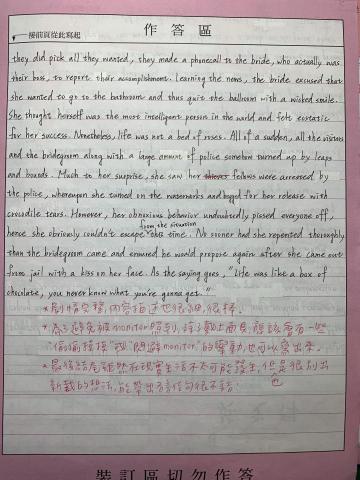 作答區
接前頁從此寫起
they did pick all they wanted, they made a phonecall to the bride, who actually was
their boss, to report their accomplishment. Learning the news, the bride excused that
she wanted to go to the bathroom and thus quit the ballroom with a wicked smile.
She thought herself was the most intelligent person in the world and felt ecstatic
for her success. Nonetheless, life was not a bed of roses. All of a sudden, all the visitors
and the bridegroom along with a large amount of police somehow turned up by leaps
and bounds. Much to her surprise, she saw her thieves fellows were arrested by
the police, whereupon she turned on the waterworks and beged for her release with
crocodile tears. However, her obnoxious behavior undoubtedly pissed everyone off,
from the situation
hence she obviously couldn't escape this time. No sooner had she repented thoroughly
than the bridegroom came and ensured he would propose again after she came out
from jail with a kiss on her face. As the saying goes, "Life was like a box of
chocolate, you never know what you're gonna get."
*劇情完整,內容描述也很細,很棒.
*為了避免被monitor照到,待戴上面具,應該會有一些
"偷偷摸摸"或"閃避monitor"的舉動,也可以寫出來.
*最後結局雖然在現實生活不太可能發生,但是很別出
新裁的想法,能帶出諺語句也很不錯.
裝訂區切勿作答